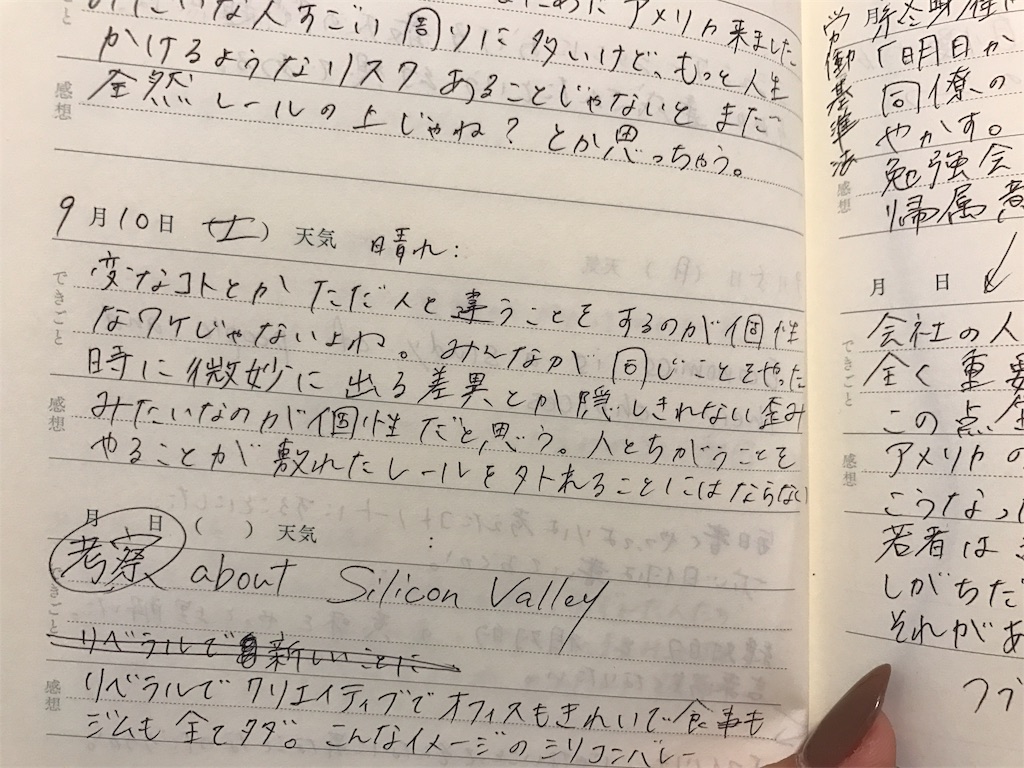 みたいな人すごい周りに多いけど、もっと人生
かけるようなリスクあることじゃないとまだ
全然レールの上じゃね？とか思っちゃう。
感想
9月10日(土) 天気 晴れ:
できごと
変なコトとかただ人と違うことをするのが個性
なワケじゃないよね。みんなが同じことをやった
時に微妙に出る差異とか隠しきれない歪み
感想
みたいなのが個性だと思う。人とちがうことを
やることが敷れたレールを外れることにはならない
月 日( ) 天気 :
考察 about Silicon Valley
できごと
リベラルで新しいことに
リベラルでクリエイティブでオフィスもきれいで食事も
感想
ジムも全てタダ。こんなイメージのシリコンバレー
労働基準法
「明日か
同僚の
やかす。
勉強会
感想
帰属
月 日
会社の人
できごと
全く重要
この点
アメリカの
感想
こうなっ
若者は
しがちだ
それがあ